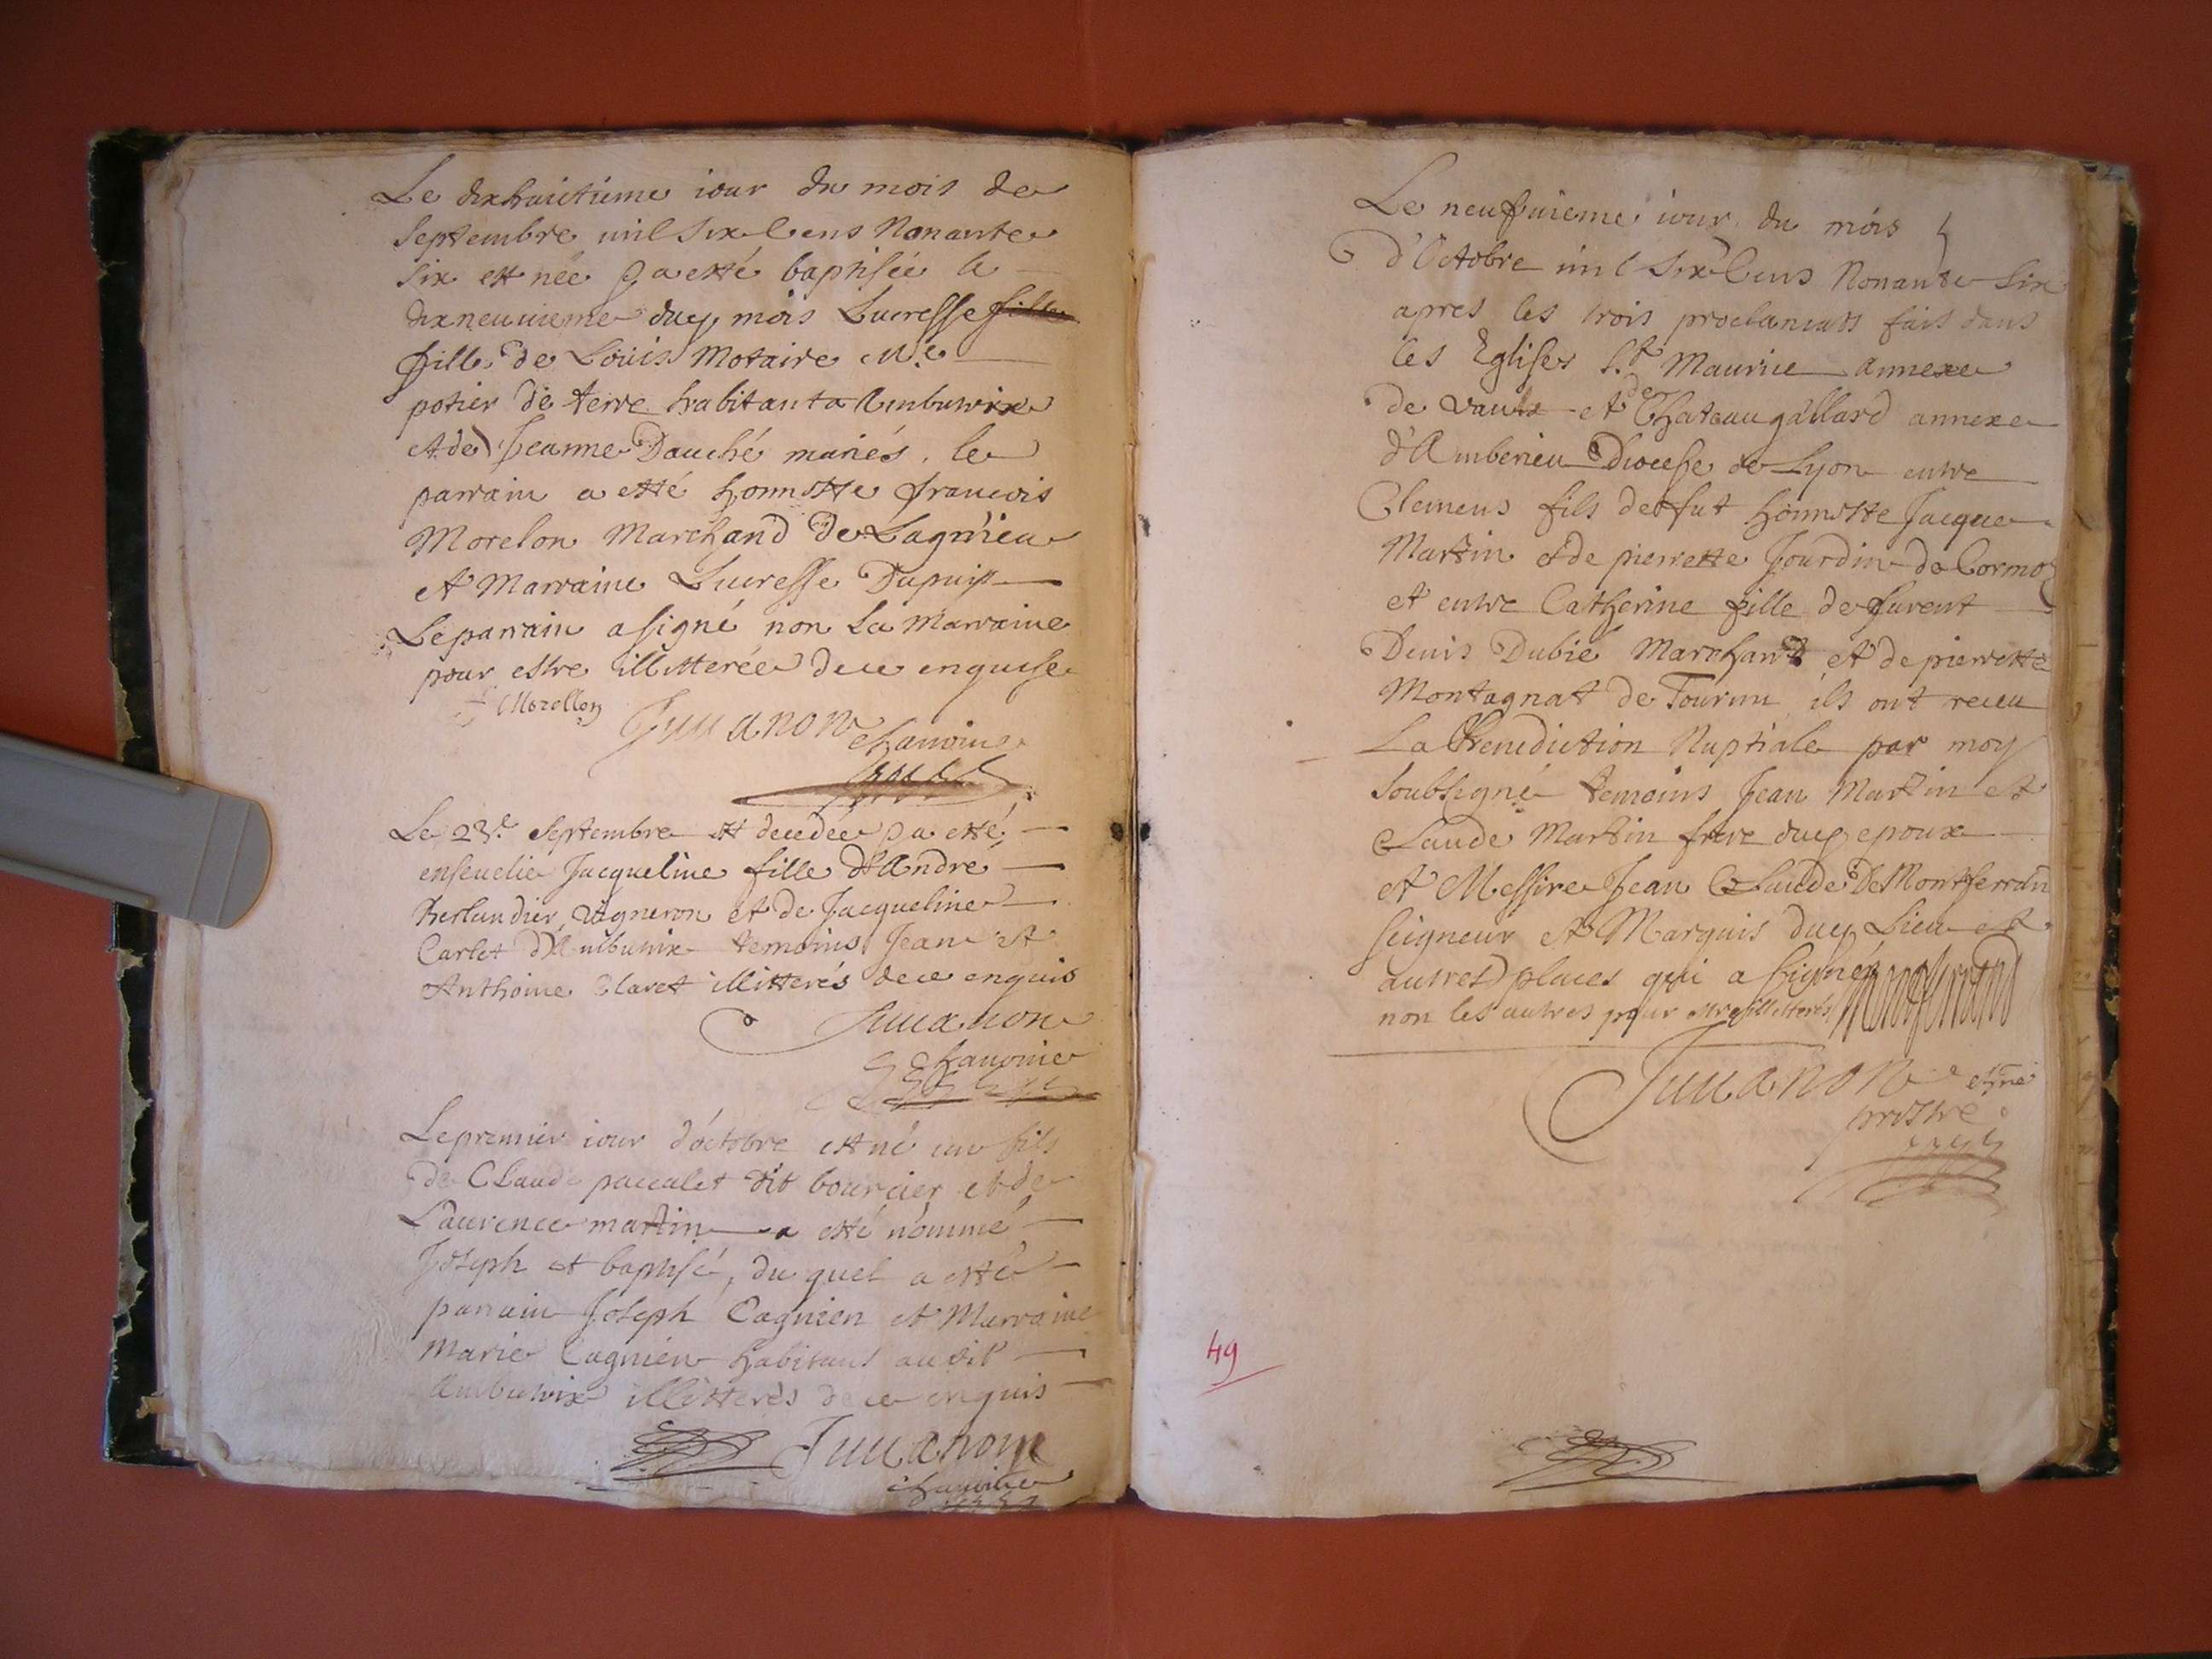 Le dixhuitieme iour du mois de
Septembre mil six Cens Nonante
six est née & a esté baptisée le
dixneuuieme ducy mois Lucresse fille
fille de Loüis Notaire Me
potier de terre habitant a Ambutrix
et de Jeanne Dauché mariés. le
parrain a esté honneste francois
Morelon Marchand de Lagnieu
et Marraine Lucresse Dupuis
Le parrain a signé non La Marraine
pour estre illitterée de ce enquise
f Morellon
Juuanon chanoine
Le 23.e Septembre est decedée & a esté
enseuelie Jacqueline fille d'André
Berlandier, Vigneron et de Jacqueline
Carlet d'Ambutrix temoins Jean et
Anthoine Claret illitterés de ce enquis
Juuanon
Chanoine
Le premier iour d'octobre est né un fils
de Claude paccalet dit bourcier et de
Laurence martin a esté nommé
Joseph et baptisé, du quel a esté
parrain Joseph Cagnien et Marraine
Marie Cagnien habitans audit
Ambutrix illitterés de ce enquis
Juuanon
chanoine
Le neufuieme iour du mois
d'Octobre mil Six Cens Nonante Six
apres les trois proclamats fais dans
les Eglises St. Maurice annexe
de Vaulx et de Chateaugallard annexe
d'Amberieu Diocese de Lyon entre
Clemens fils de fut honneste Jacque
Martin et de pierrette Jourdin de Cormoz
et entre Catherine fille de furent
Denis Dubié Marchand et de pierrette
Montagnat de Tournu ils ont receu
La Benediction Nuptiale par moy
Soubsigné temoins Jean Martin et
Claude Martin frere ducy epoux
et Messire Jean Claude De Montferran
seigneur et Marquis ducy Lieu et
autres places qui a signé
non les autres pour estre illitterés Montferrand
Juuanon chne
prestre
49